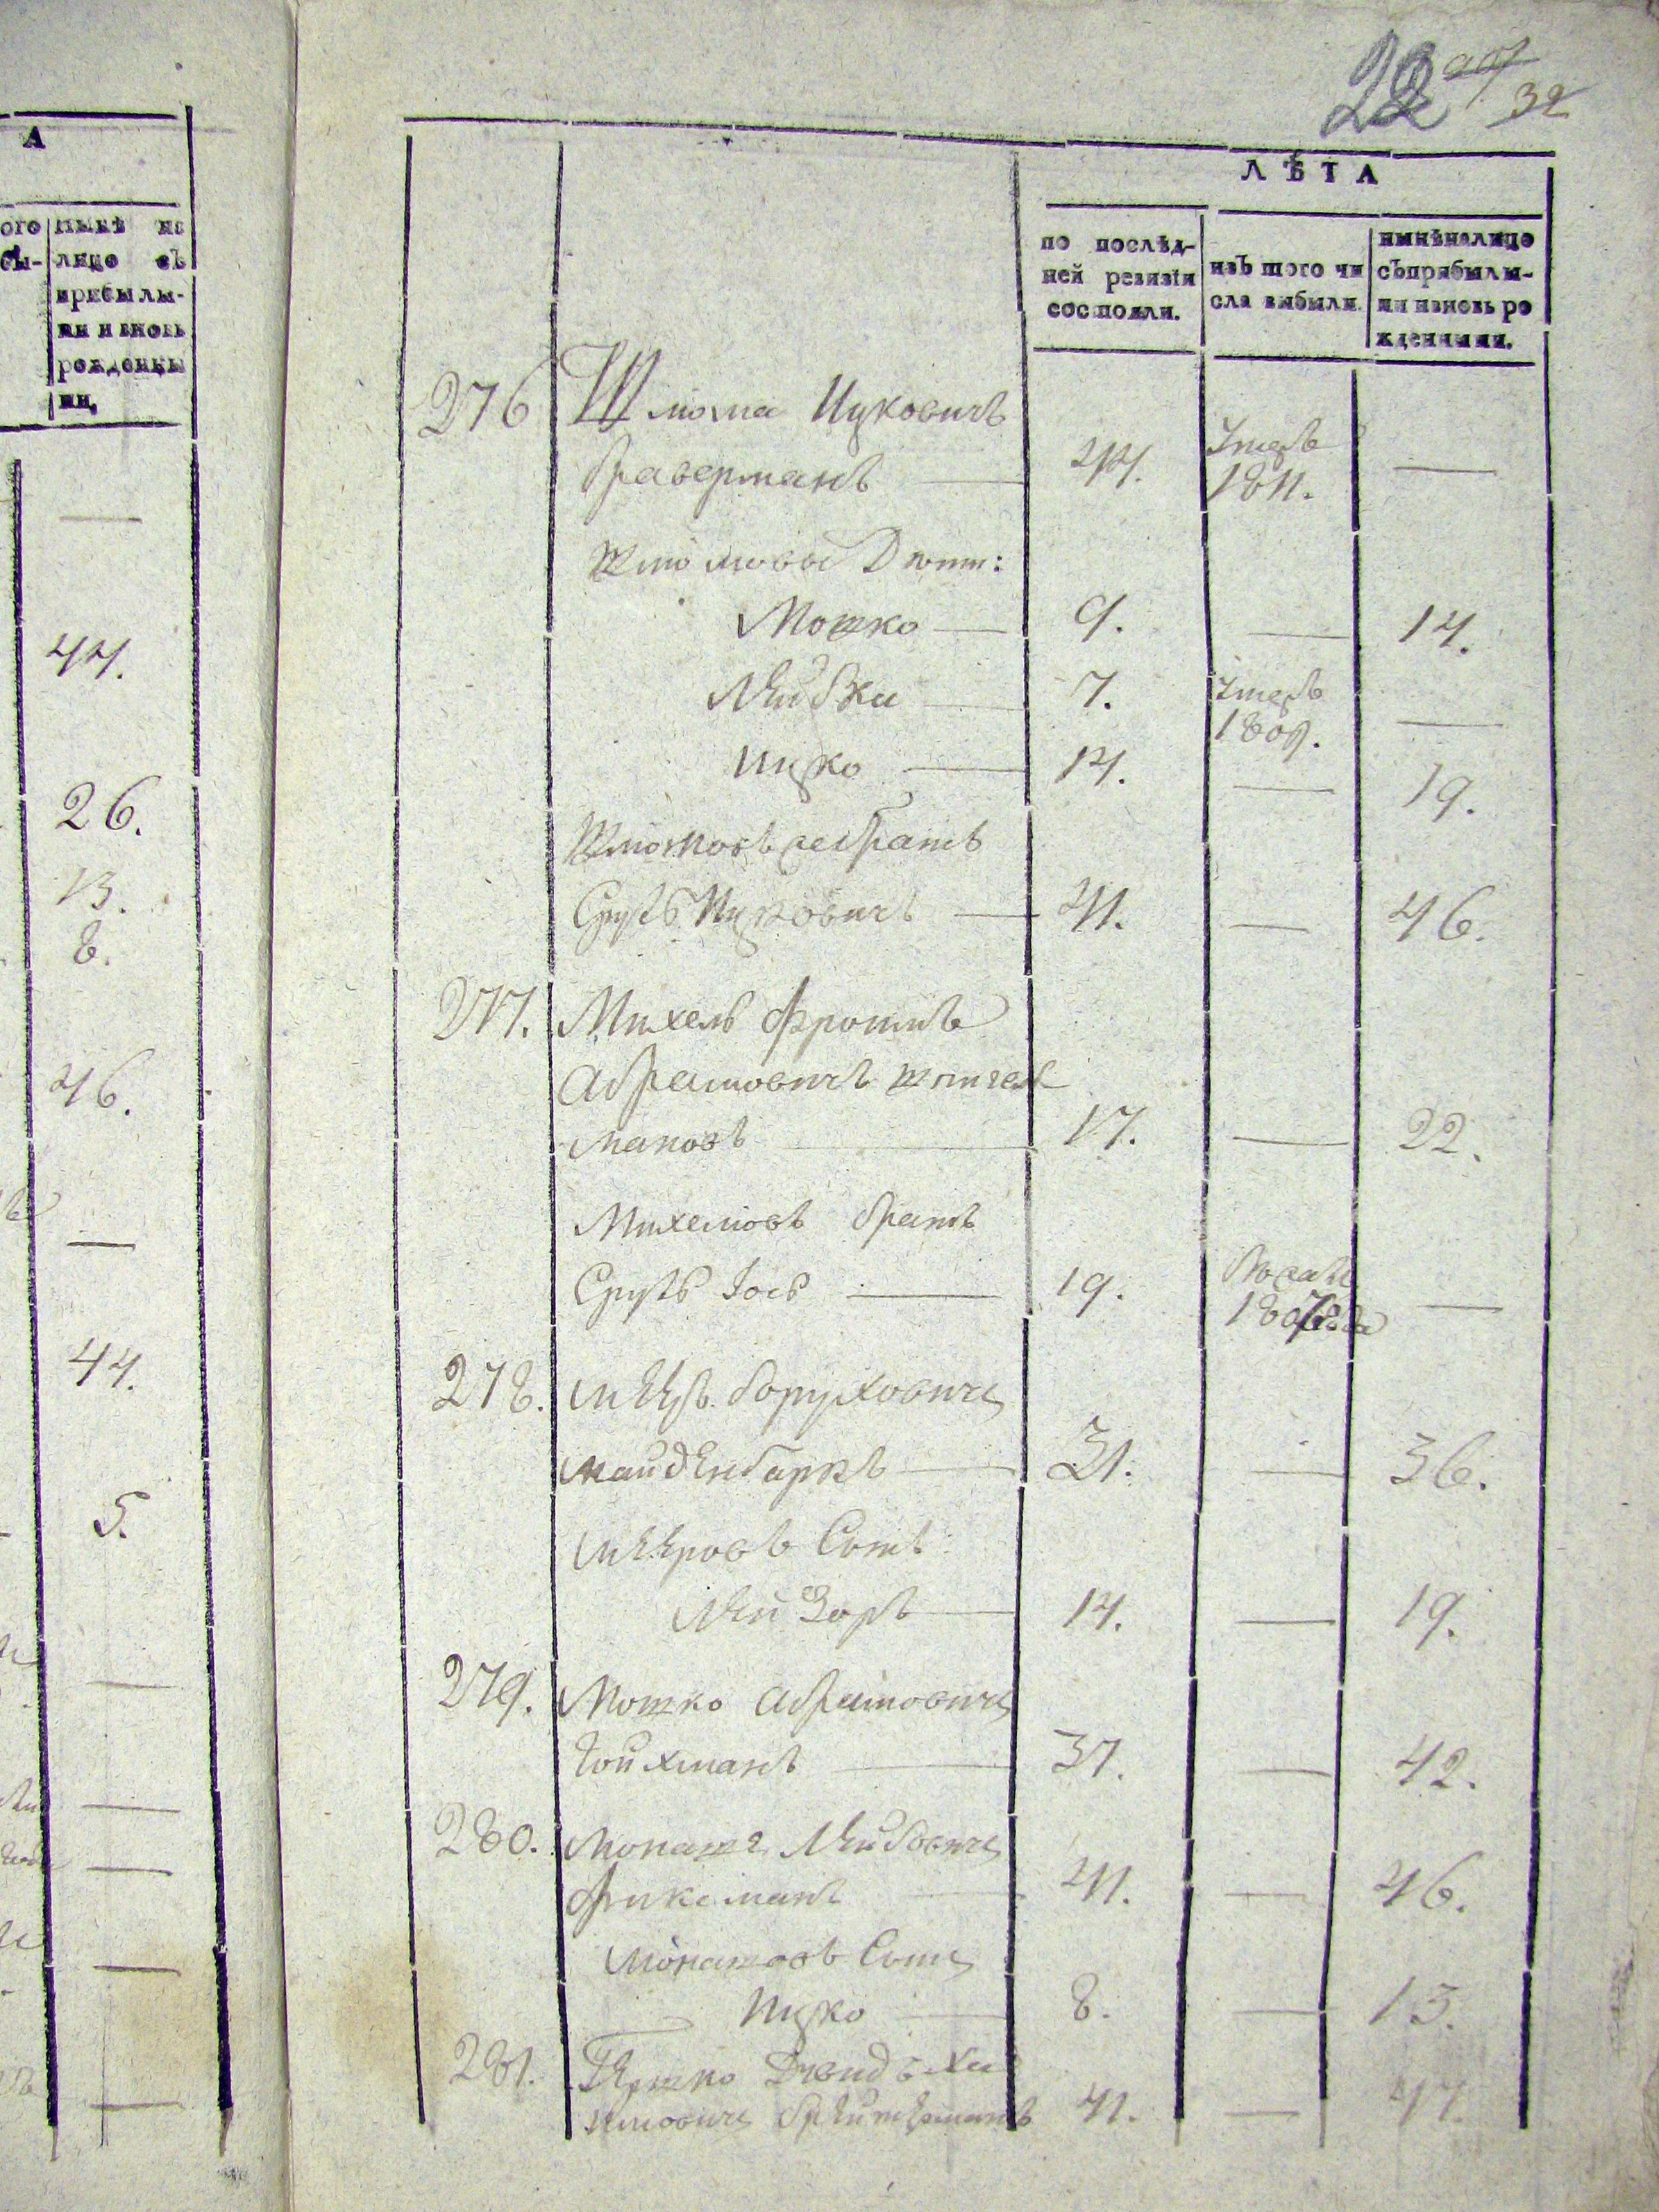 А
ого
бы-
нынѣ на
лице съ
прибылы-
ми и вновь
рожденны
ми,
44.
26.
13.
8.
46.
44.
5.
22
32
ЛѢТА
по послѣд-
ней ревизіи
состояли.
изъ того чи
сла выбыли.
нынѣ налицо
съ прибылы-
ми и вновь ро
жденными.
276 Шлиома Ицковичъ
браверманъ — 44. Умеръ 1811. —
Шлиомовы Дѣти:
Мошко — 9. — 14.
Лейбка — 7. Умеръ 1809. —
Ицко — 14. — 19.
Шлиомовъ братъ
Сруль Ицковичъ — 41. — 46.
277. Михель Фроимъ
Абрамовичъ
мановъ — 17. — 22.
Михелювъ братъ
Сруль Іось — 19. —
278. Меер Борухович
Майденбаркъ — 31. — 36.
Мееровъ Сынъ
Лейзоръ — 14. — 19.
279. Мошко Абрамович
Гойхманъ — 37. — 42.
280. Монаше Лейбович
Фиксманъ — 41. — 46.
Монашовъ Сын
Ицко — 8. — 13.
281. Гершко
41. — 47.